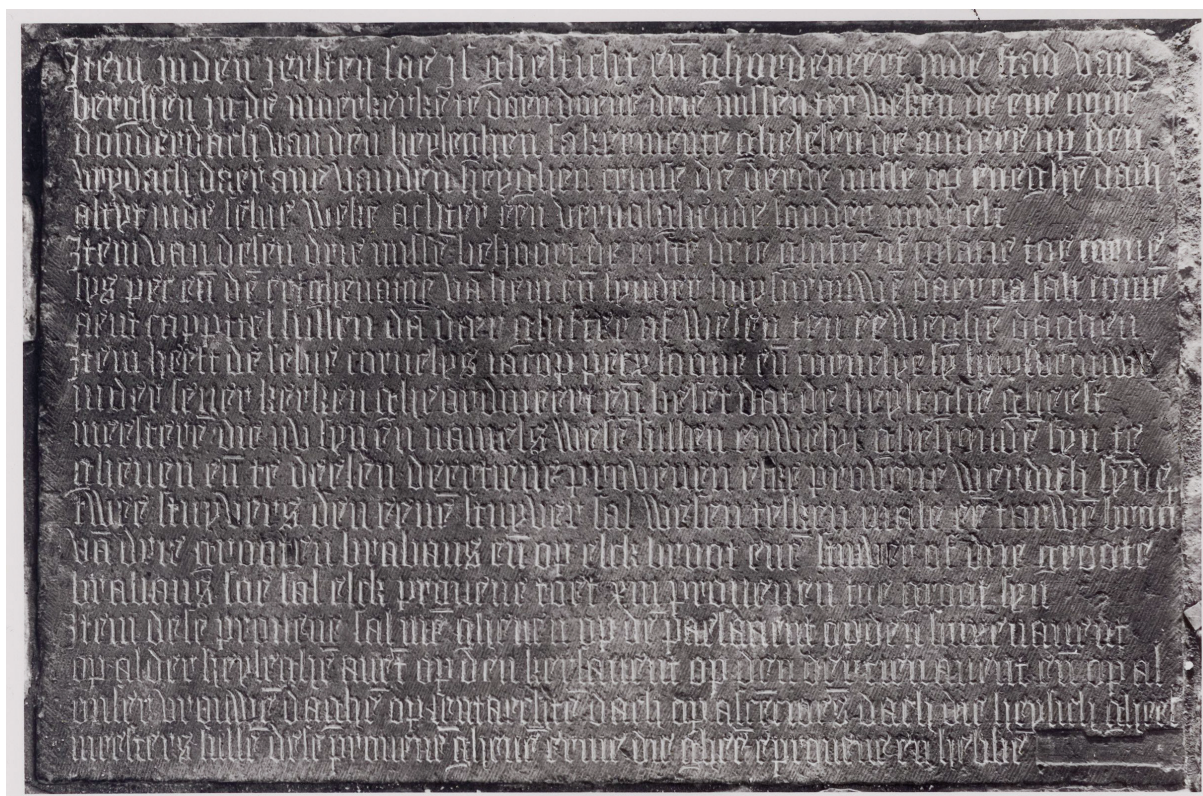 Item inden iersten soe is ghesticht en̄ gheordeneert inde stad van
berghen in de moerkerke te doen doene drie missen ter weken de eene opne
donderdach van den heyleghen sakremente ghelesen de andere op den
vrydach daer ane vanden heyghen cruise de derde misse op eneghē dach
altyt inde selue weke achter een vervolghende sonder
Item van desen drie missē behoort de erste drie ghifte of colacie toe
en̄ dē vā hem en̄ synder huysvrouwē daer na sal
cappittel sullen dā daer ghifter af wesen ten eeweghē daghen
Item heeft de selue cornelys iacop petz sone en̄ cornelye syn huysvrouwe
inder seluer kerken gheordineert en̄ beset dat de heyleghe gheest
meesterē die nv syn en̄ namels wesē sullen ewich ghehoudē syn te
gheuen en̄ te deelen dertiene provenen elke provene werdich synde
twee stuyvers den eenē stuyver sal wesen telken male eē tarwē broot
vā drie grooten brabans en̄ op elck broot enē stuver of drie groote
brabans soe sal elck provene tot xiii provenen toe groot syn
Item dese provene sal mē gheuen op dē paesauent opden sinxenauent
op alder heyleghē auēt op den kersauent op den dertien auent en̄ op al
onser vrouwē daghē op sacramēs dach die heylich gheest
meesters sullē dese provenē gheuē die gheē provene en hebbē